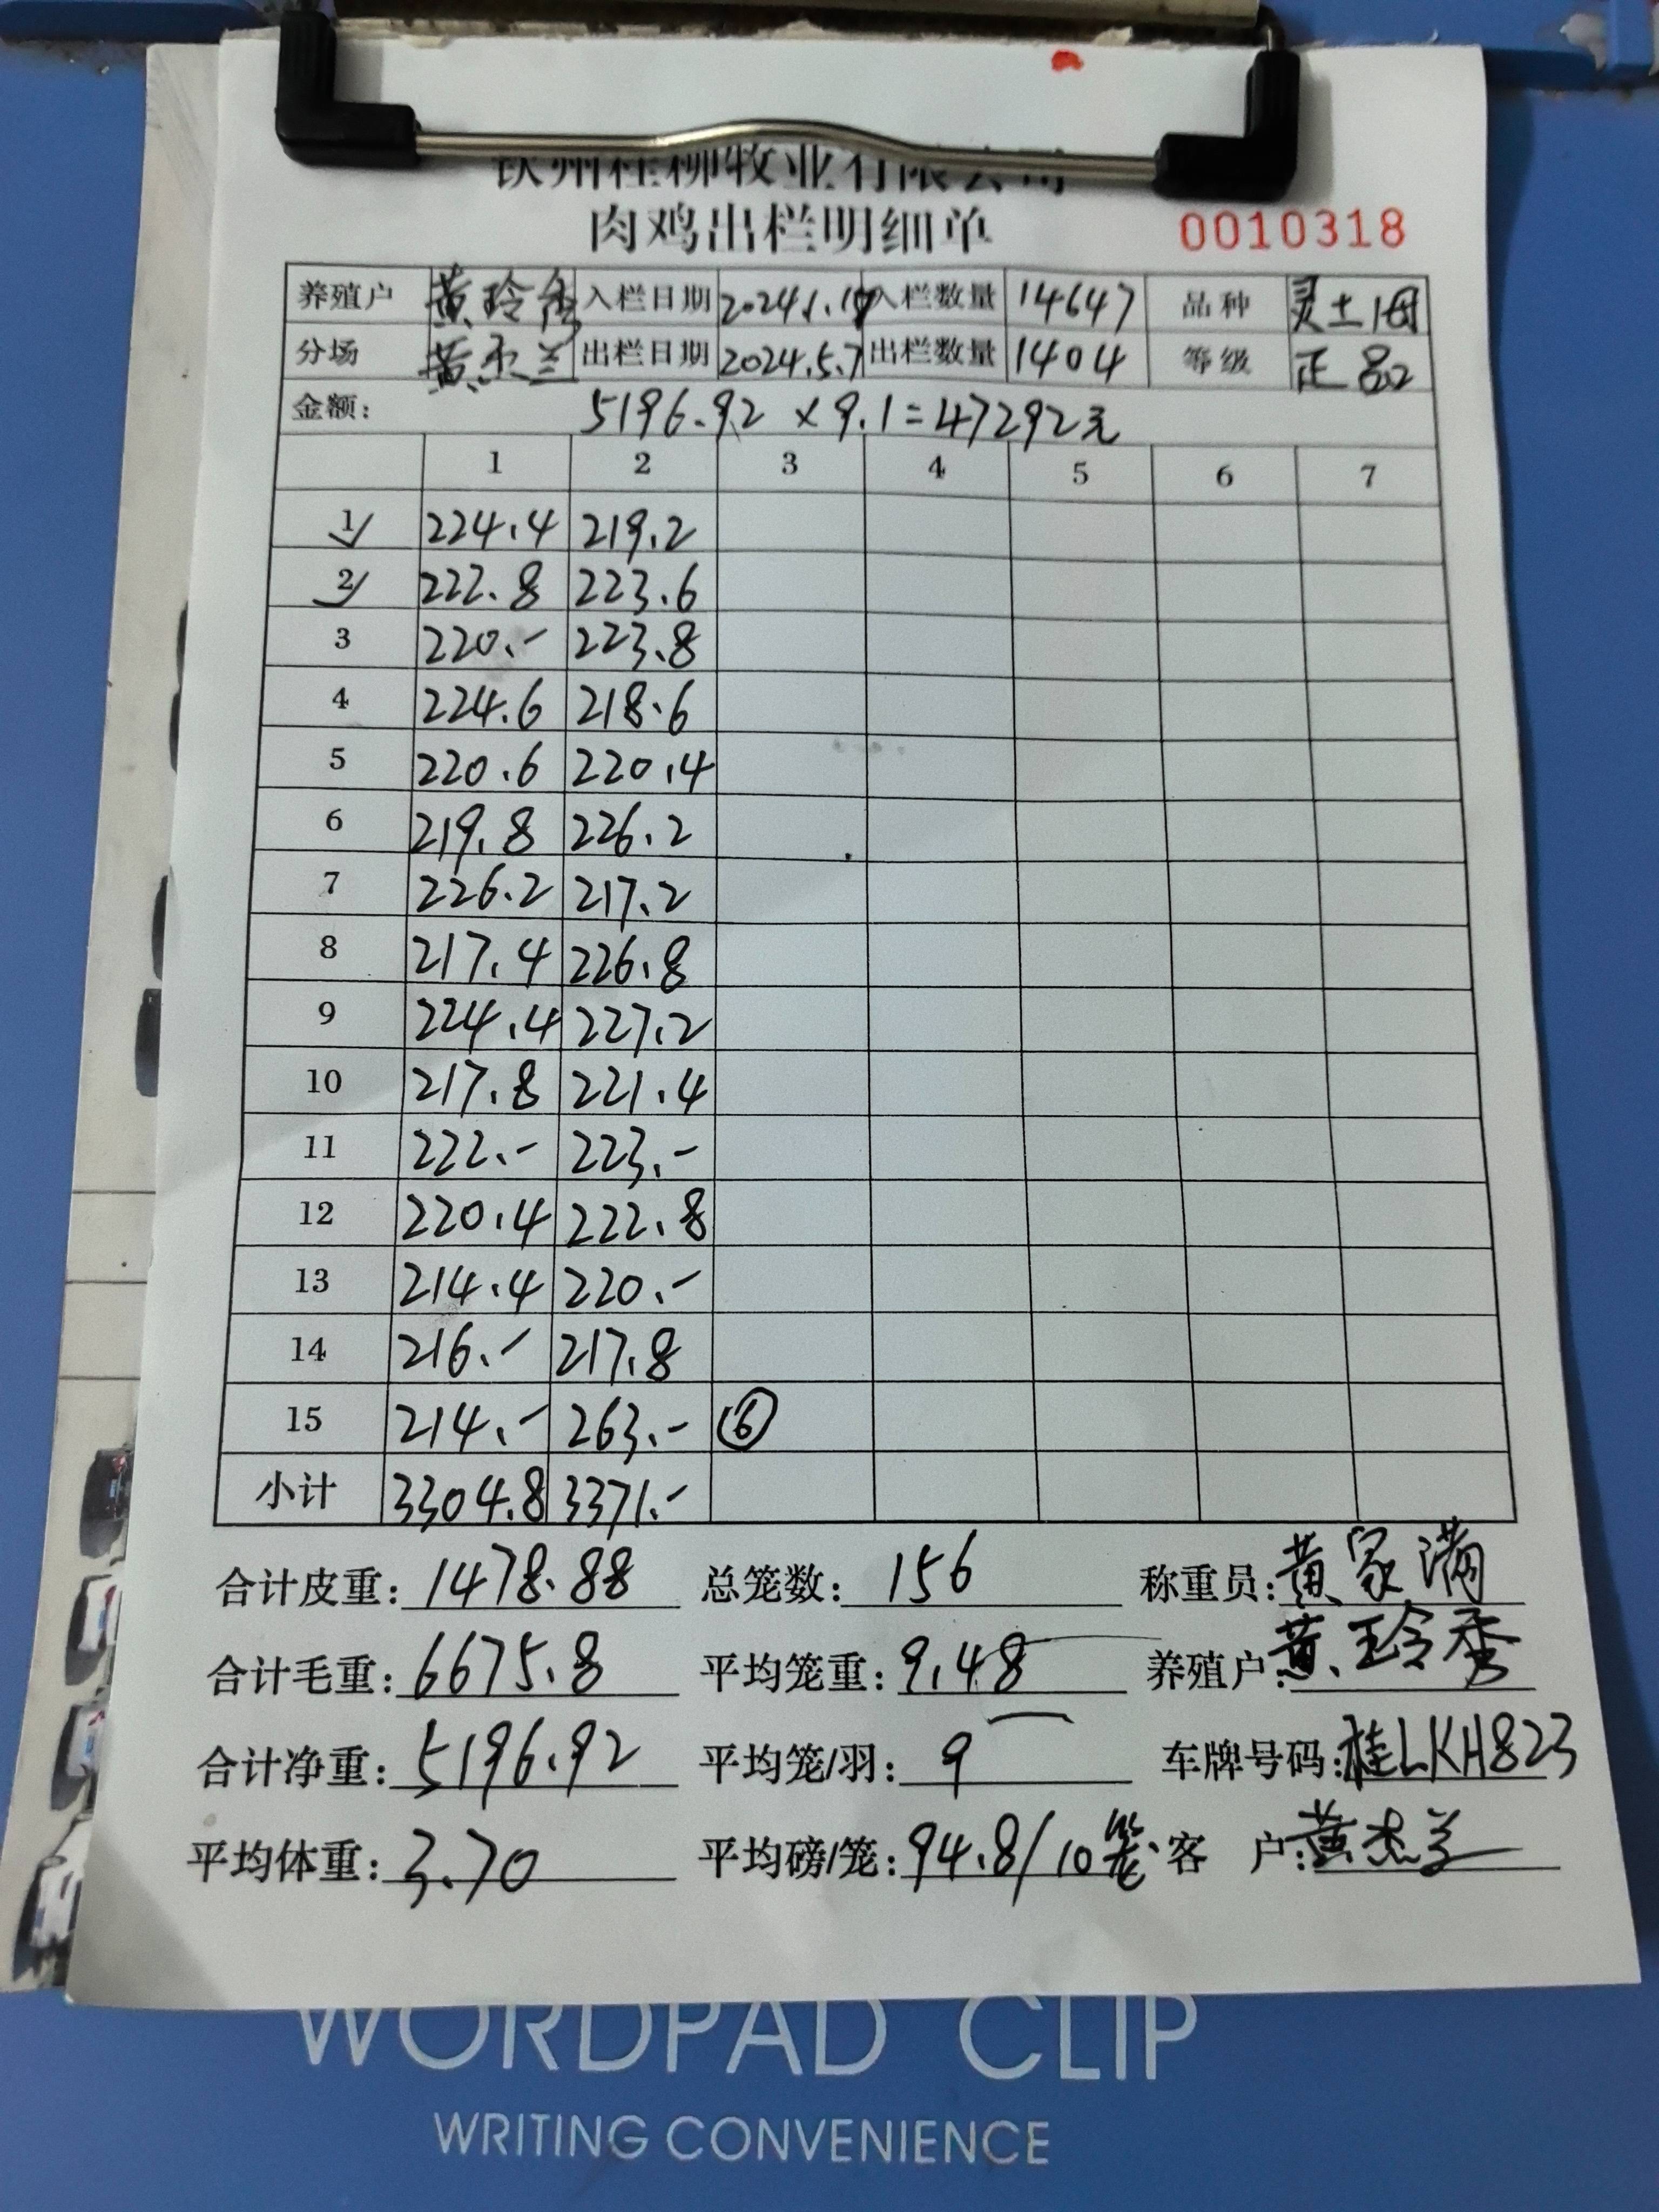 钦州桂柳牧业有限公司
肉鸡出栏明细单 0010318
养殖户 黄玲秀 入栏日期 2024.1.19 入栏数量 14647 品种 灵土1母
分场 黄杰兰 出栏日期 2024.5.7 出栏数量 1404 等级 正品2
金额: 5196.92 × 9.1=47292元
1 2 3 4 5 6 7
1 224.4 219.2
2 222.8 223.6
3 220.- 223.8
4 224.6 218.6
5 220.6 220.4
6 219.8 226.2
7 226.2 217.2
8 217.4 226.8
9 224.4 227.2
10 217.8 221.4
11 222.- 223.-
12 220.4 222.8
13 214.4 220.-
14 216.- 217.8
15 214.- 263.- ⑥
小计 3304.8 3371.-
合计皮重: 1478.88 总笼数: 156 称重员: 黄家满
合计毛重: 6675.8 平均笼重: 9.48 养殖户: 黄玲秀
合计净重: 5196.92 平均笼/羽: 9 车牌号码: 桂LKH823
平均体重: 3.70 平均磅/笼: 94.8/10笼 客 户: 黄杰兰
WORDPAD CLIP
WRITING CONVENIENCE